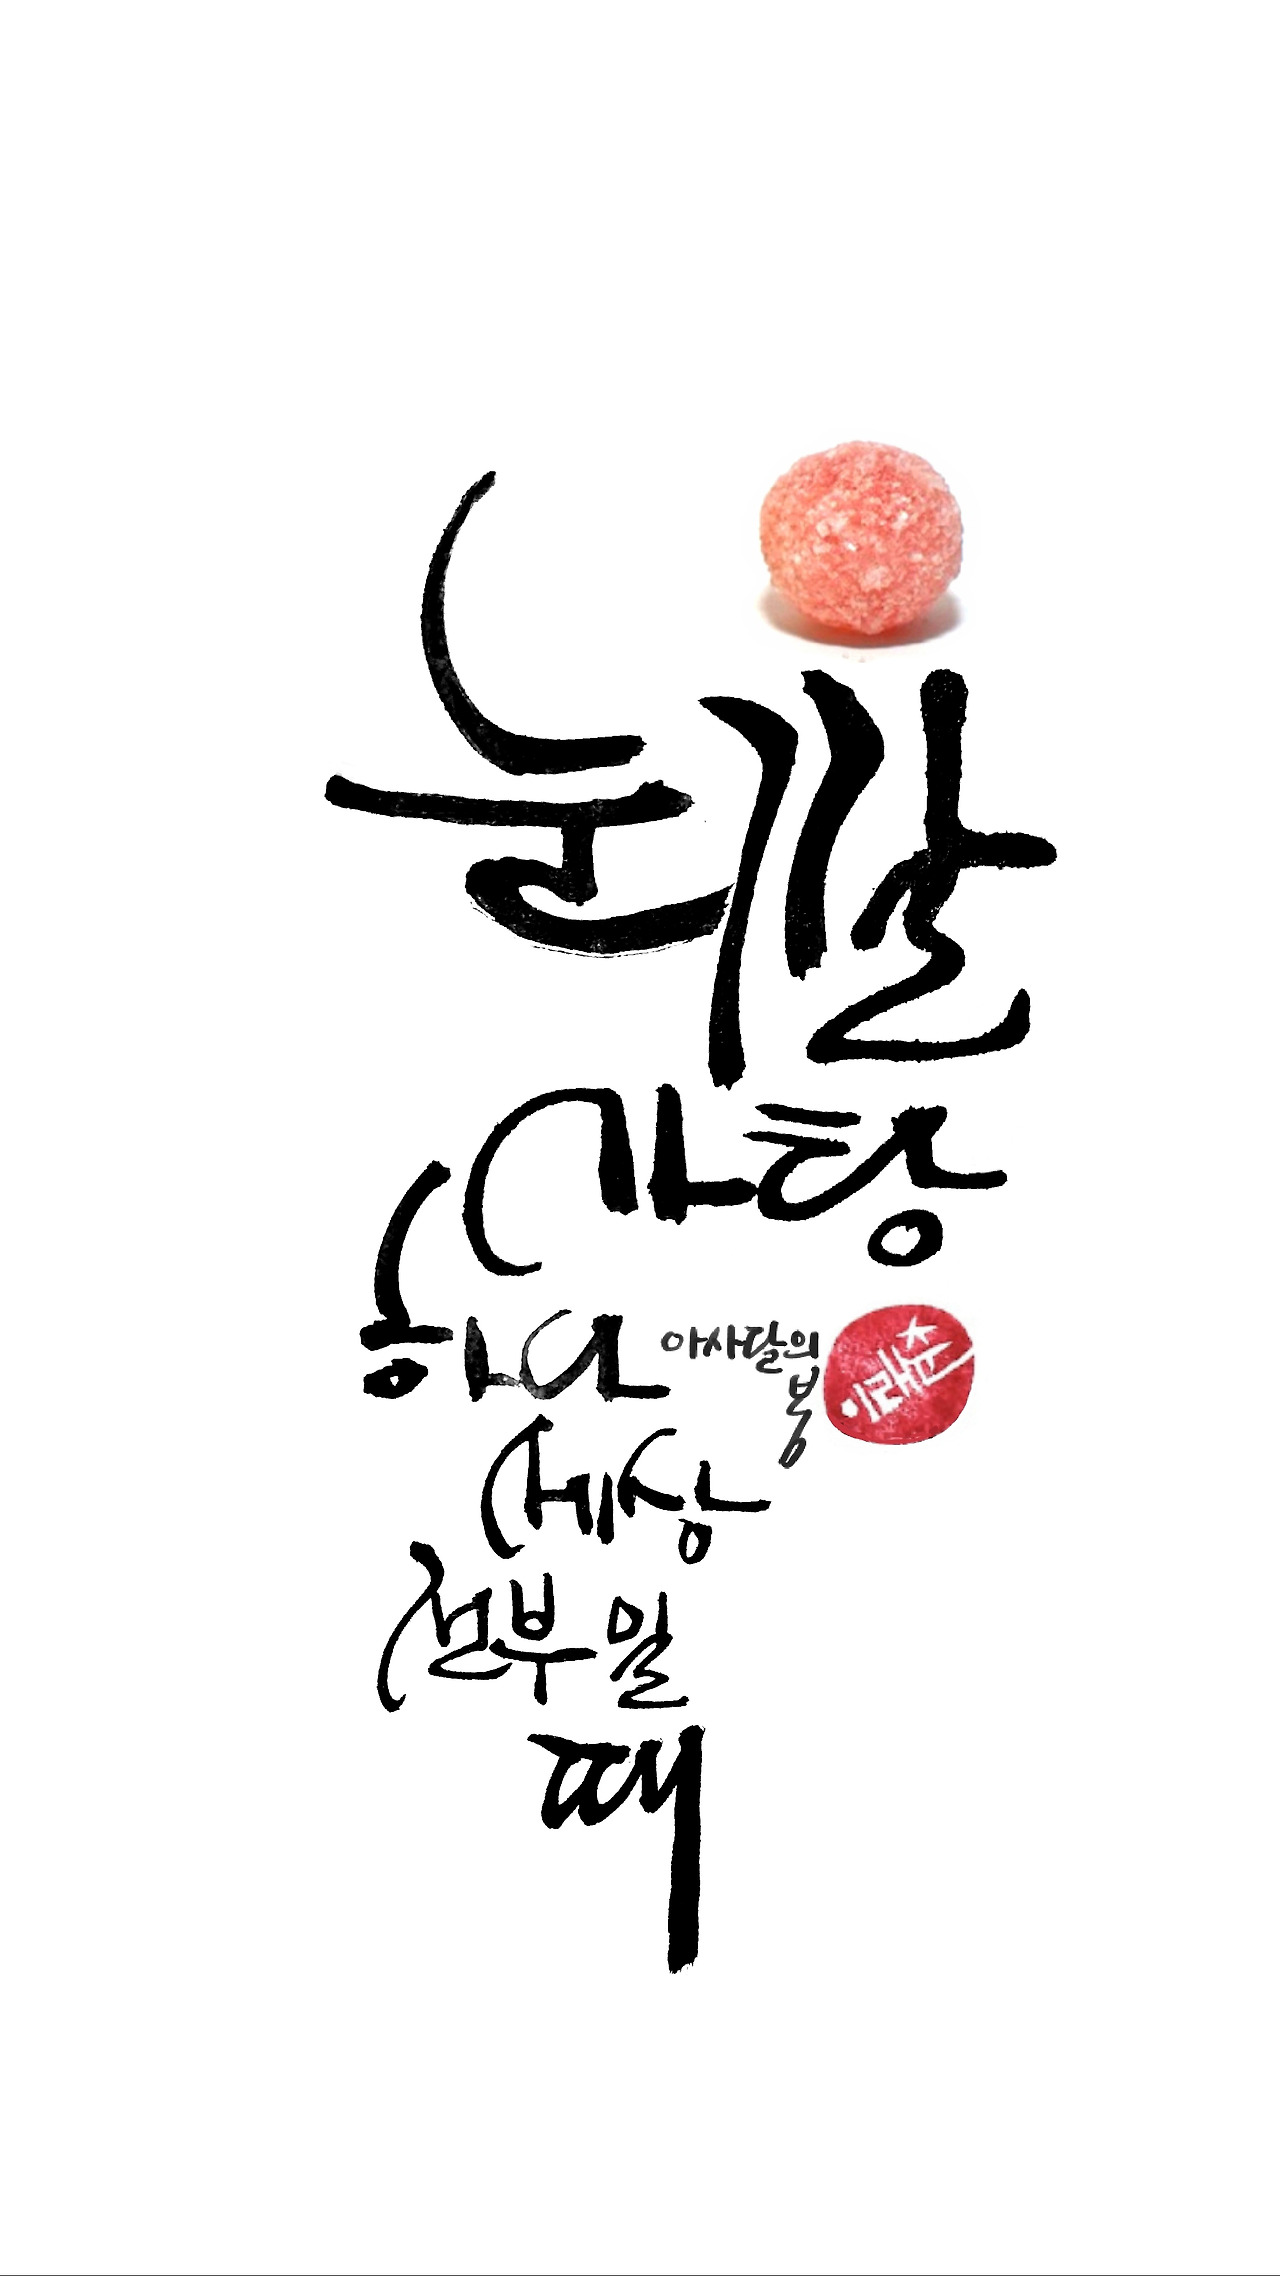 눈깔
사탕
하나
세상
전부일
때
아사달의
봄
이래춘